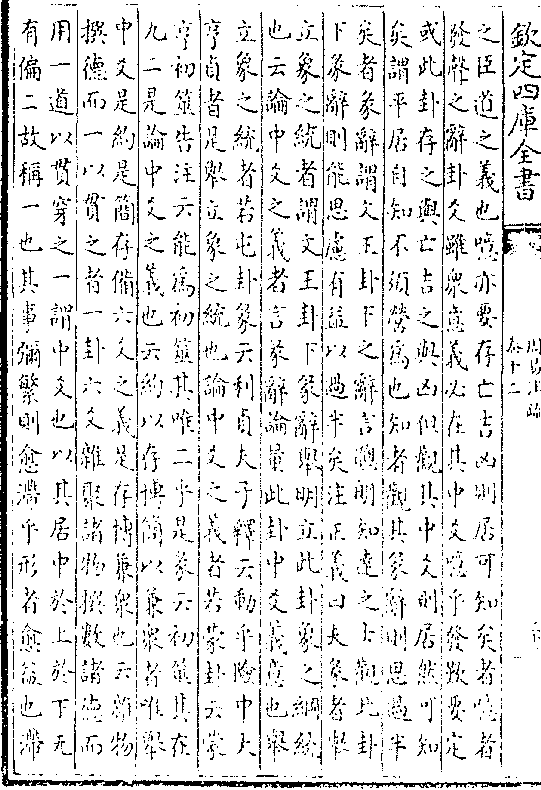 欽定四庫全書
周易注疏
卷十二
之臣道之義也噫亦要存亡吉凶則居可知矣者噫者
發聲之辭卦爻雖衆意義必在其中爻噫乎發歎要定
或此卦存之與亡吉之與凶但觀其中爻則居然可知
矣謂平居自知不須營爲也知者觀其彖辭則思過半
矣者彖辭謂文王卦下之辭言聰明知達之士觀此卦
下彖辭則能思慮有益以過半矣注正義曰夫彖者舉
立象之統者謂文王卦下彖辭舉明立此卦象之綱統
也云論中爻之義者言彖辭論量此卦中爻義意也舉
立象之統者若屯卦彖云利貞夫子釋云動乎險中大
亨貞者是舉立象之統也論中爻之義者若蒙卦云蒙
亨初筮告注云能爲初筮其唯二乎是彖云初筮其在
九二是論中爻之義也云約以存博簡以兼衆者唯舉
中爻是約是簡存備六爻之義是存博兼衆也云雜物
撰德而一以貫之者一卦六爻雜聚諸物撰數諸德而
用一道以貫穿之一謂中爻也以其居中於上於下无
有偏二故稱一也其事彌繁則愈滯乎形者愈益也滯